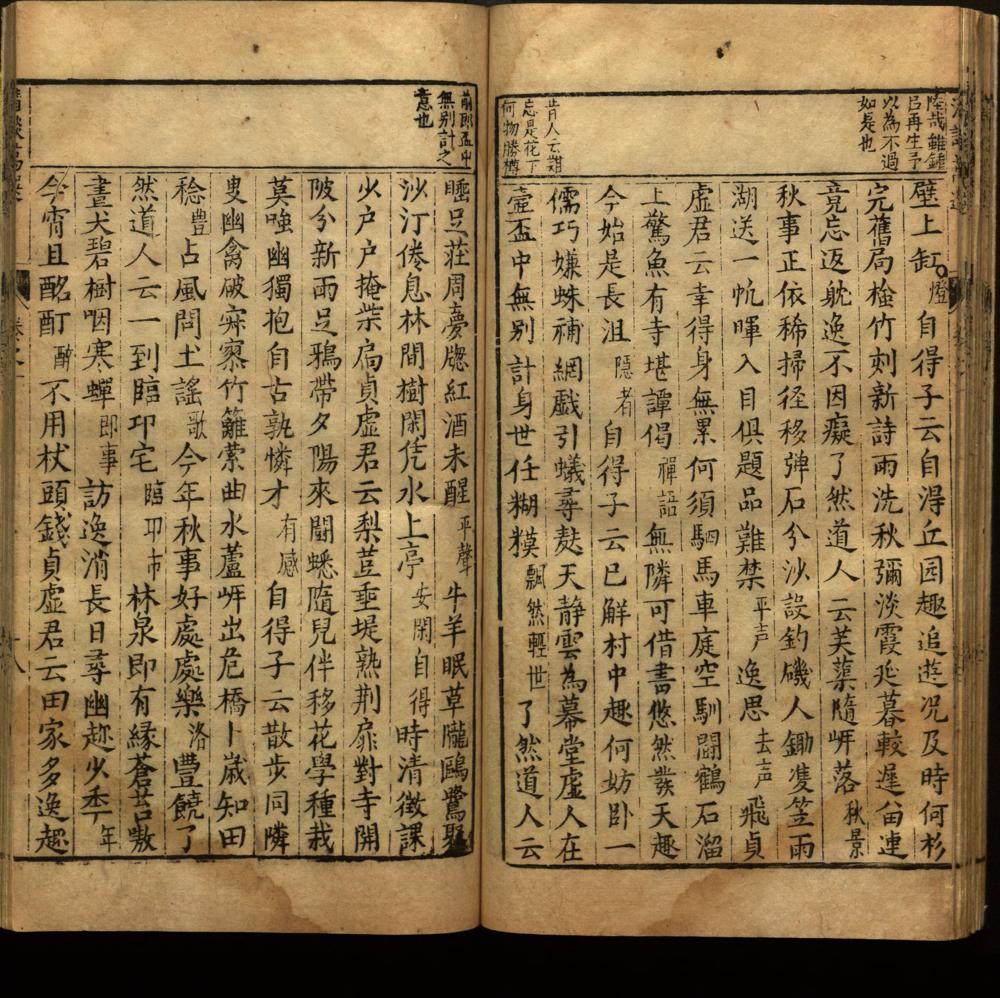 陸哉雖鍾
呂再生予
以為不過
如是也
昔人云難
忘是花下
何物勝樽
壁上缸燈自得子云自淂丘园趣追遊况及時何杉
完舊局檢竹刻新詩雨洗秋彌淡霞延暮較遲畄連
竟忘返躭逸不因癡了然道人云芙蕖隨岍落秋景
秋事正依稀掃径移弹石分沙設釣磯人鋤隻笠雨
湖送一帆暉入目俱題品難禁平声逸思去声飛貞
虛君云幸得身無累何須駟馬車庭空馴鬪鶴石溜
上驚魚有寺堪譚偈禪語無隣可借書悠然發天趣
今始是長沮隱者自得子云已解村中趣何妨卧一
儒巧嫌蛛補網戲引蟻尋䴴天静雲為幕堂虛人在
壷盃中無别計身世任糊糢飄然輕世了然道人云
前即盃中
無别計之
意也
睡足荘周夢牕紅酒未醒平聲牛羊眠草隴鷗鷺聚
沙汀倦息林間樹閑凭水上亭安閑自得時清徵課
火户户掩柴扃貞虛君云梨荳垂堤熟荆扉對寺開
陂分新雨足鴉帶夕陽來鬪蟋隨兒伴移花學種栽
莫嗤幽獨抱自古孰憐才有感自得子云散步同隣
叟幽禽破寂寥竹籬縈曲水蘆岍出危橋卜歲知田
稔豊占風問土謡歌今年秋事好處處樂洛豊饒了
然道人云一到臨邛宅臨邛市林泉即有緣蒼苔嗷
晝犬碧樹咽寒蟬即事訪逸消長日尋幽趂少秊年
今宵且酩酊醉不用杖頭錢貞虛君云田家多逸趣